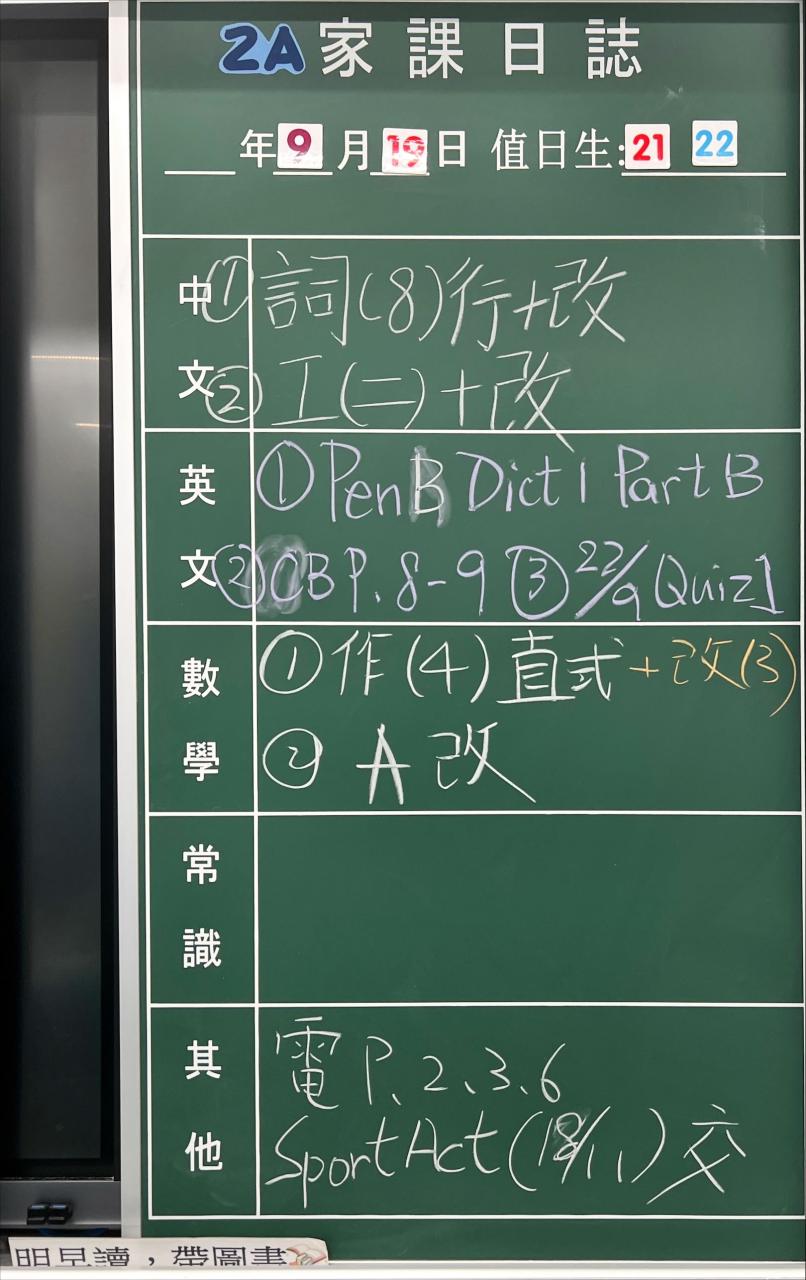 2A 家課日誌
年 9 月 19 日 值日生: 21 22
中文 ① 詞(8)行+改
② 工(二)+改
英文 ① Pen B Dict 1 Part B
② CB P. 8-9 ③ 22/9 Quiz 1
數學 ① 作(4)直式+改(3)
② A 改
常識
其他 電 P. 2、3、6
Sport Act (18/11) 交
明早讀，帶圖書